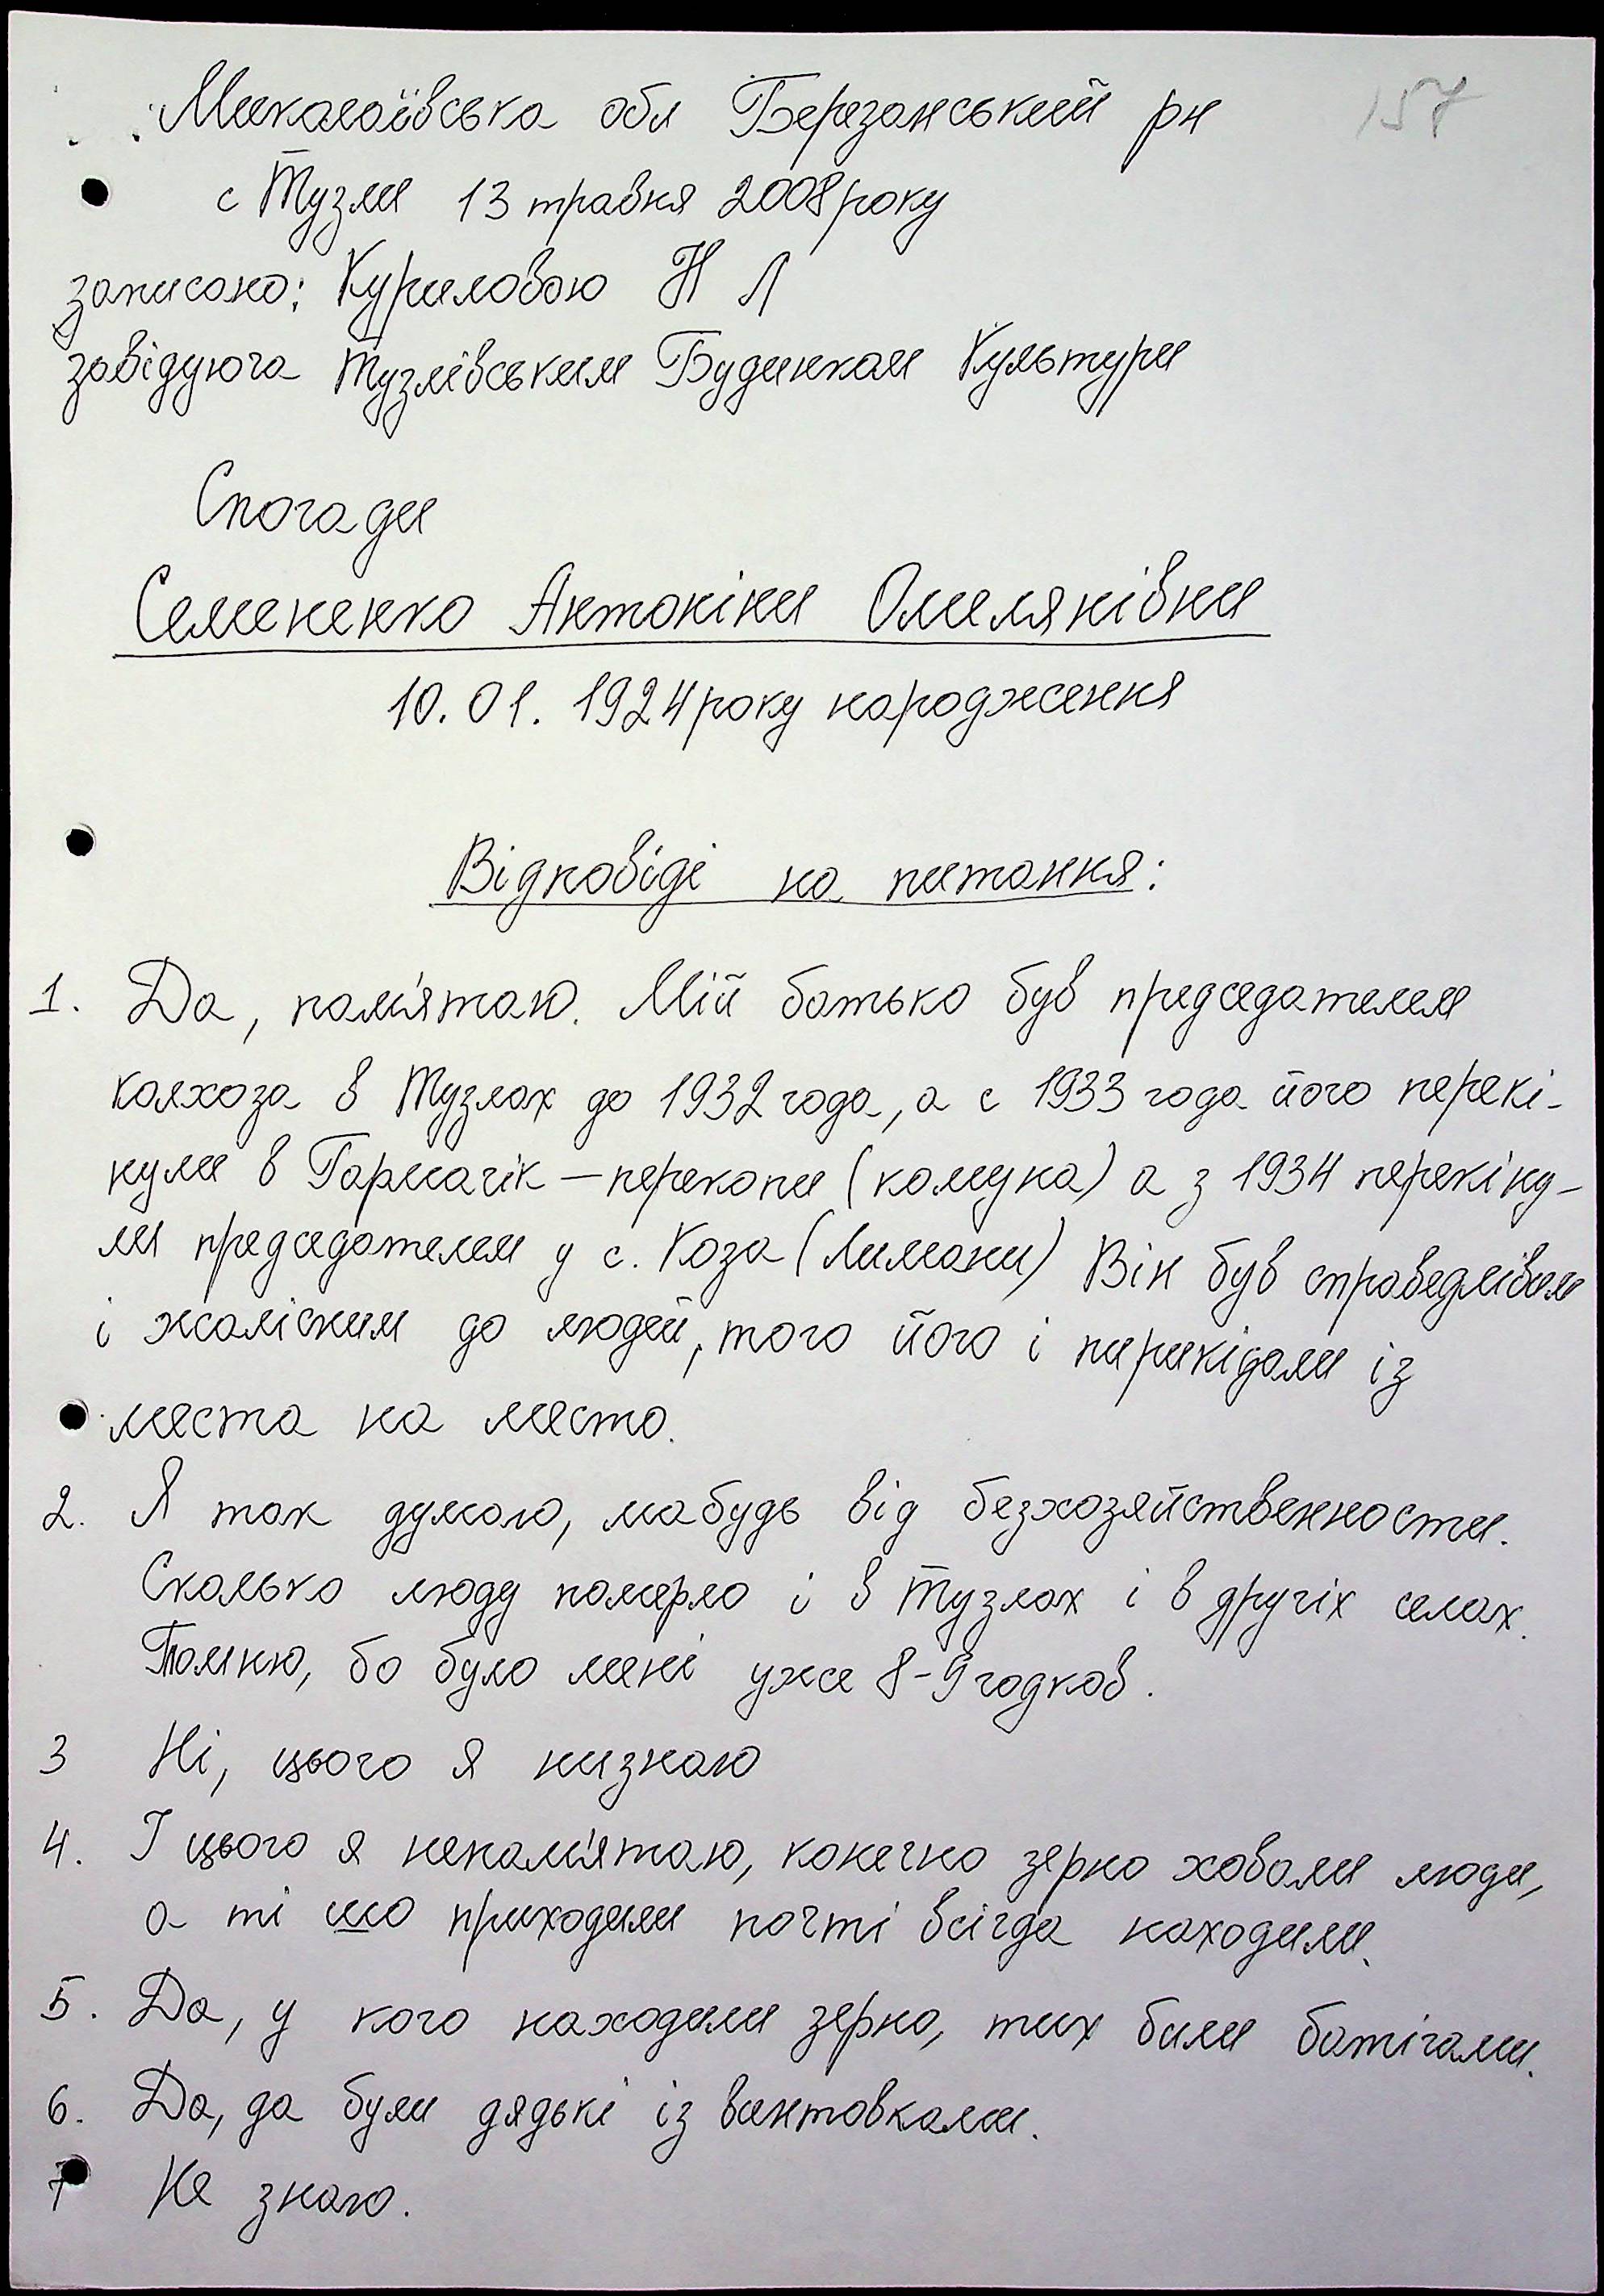 157
Миколаївська обл Березанський рн
с Тузли 13 травня 2008року
записано: Куриловою Н Л
завідуюча Тузлівським Будинком Культури
Спогади
Семененко Антоніни Омелянівни
10.01.1924року народження
Відповіді на питання:
1. Да, пам'ятаю. Мій батько був председателем
колхоза в Тузлах до 1932 года, а с 1933 года його перекі-
нули в Гармачік – перекопи (комуна) а з 1934 перекіну-
ли председателем у с. Коза (Лимани) Він був справедлівим
і жаліским до людей, того його і пирикідали із
места на место.
2. Я так думаю, мабудь від безхозяйственности.
Сколько люду померло і в Тузлах і в другіх селах.
Помню, бо було мені уже 8-9 годков.
3 Ні, цього я низнаю
4. І цього я непам'ятаю, конечно зерно ховали люди,
а ті шо приходили почті всігда находили.
5. Да, у кого находили зерно, тих били батігами.
6. Да, да були дядькі із винтовками.
7 Не знаю.